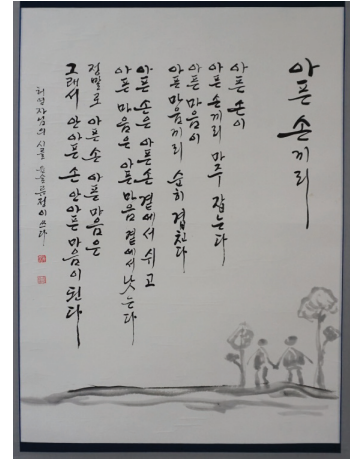 아픈 손끼리
아픈 손이
아픈 손끼리 마주 잡는다
아픈 마음이
아픈 마음끼리 순히 겹친다
아픈 손은 아픈 손 곁에서 쉬고
아픈 마음은 아픈 마음 곁에서 낫는다
정말로 아픈 손 아픈 마음은
그래서 안 아픈 손 안 아픈 마음이 된다
허영자님의 시를
쓰다